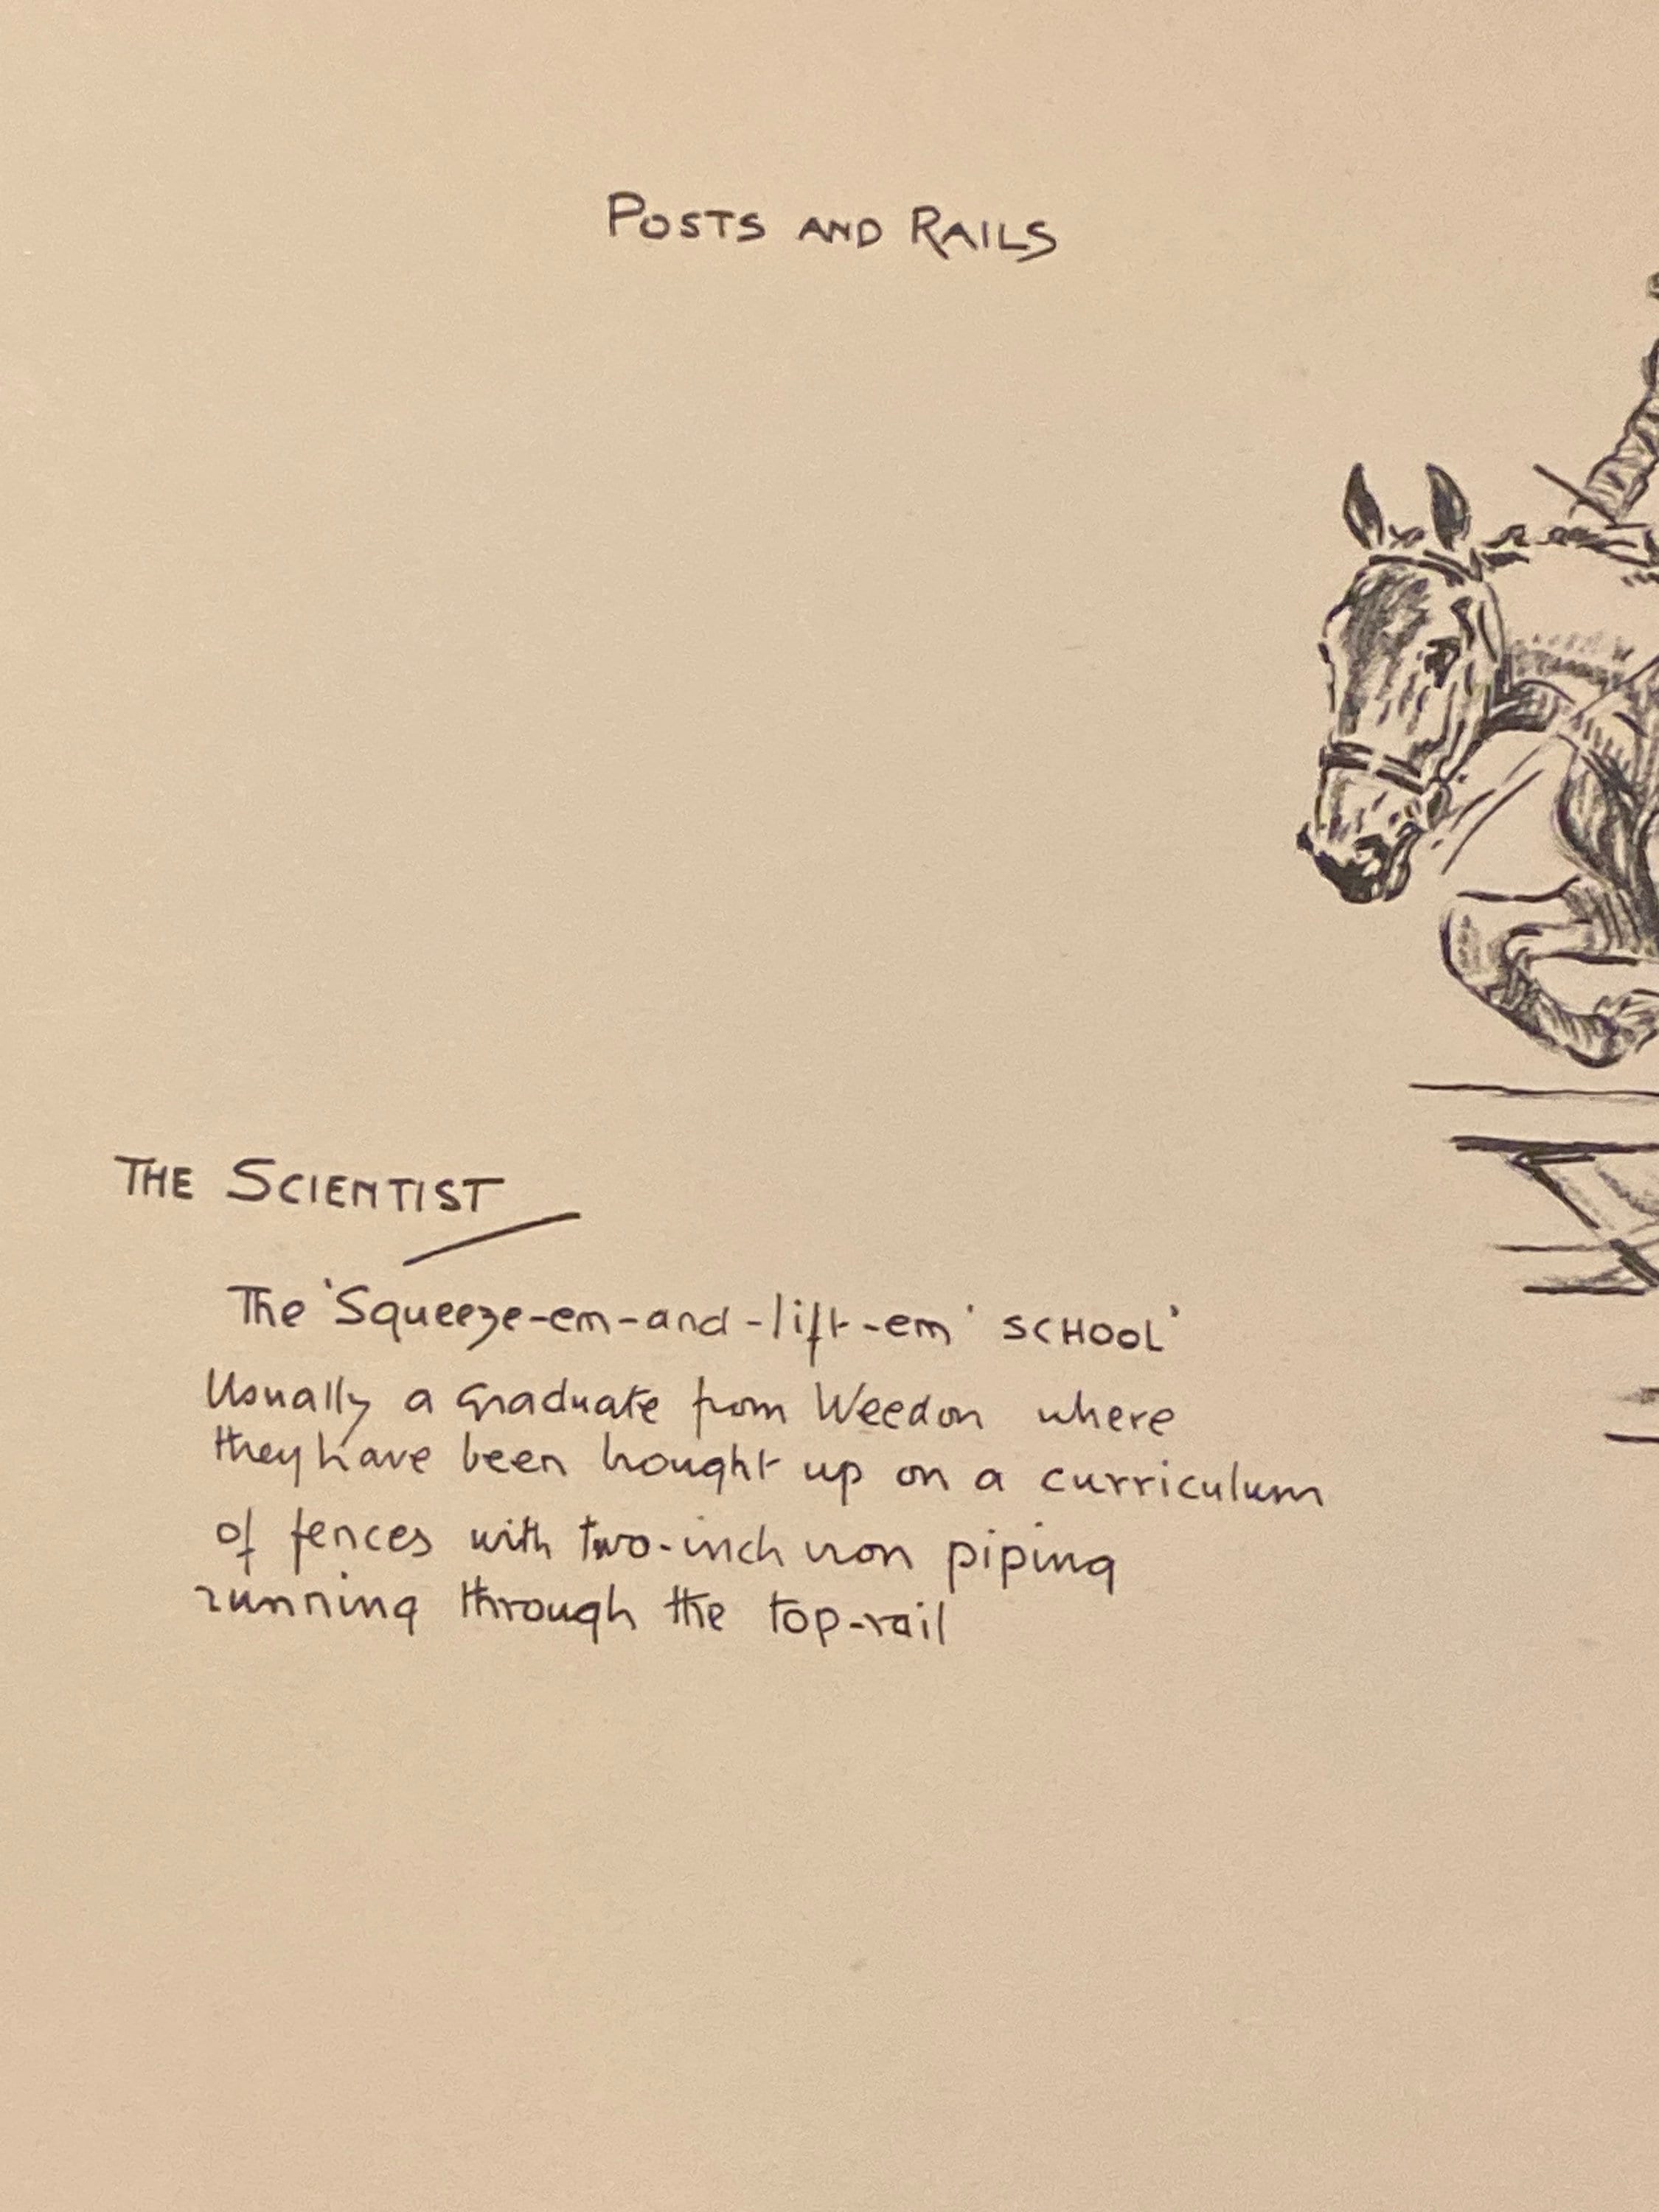 POSTS AND RAILS
THE SCIENTIST
The 'Squeeze-em-and-lift-em' SCHOOL'
Usually a graduate from Weedon where
they have been brought up on a curriculum
of fences with two-inch iron piping
running through the top-rail